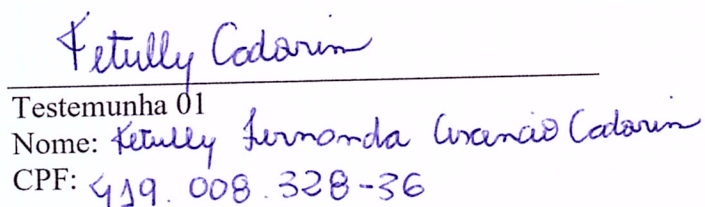 Ketully Cadorin
Testemunha 01
Nome: Ketully Fernanda Ascencio Cadorin
CPF: 419.008.328-36